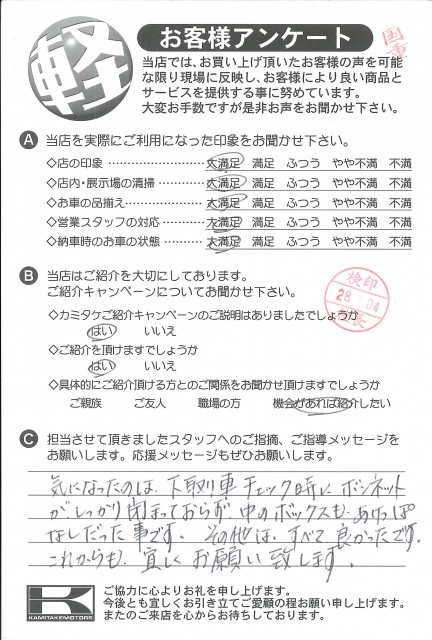 軽
お客様アンケート
国産
当店では、お買い上げ頂いたお客様の声を可能
な限り現場に反映し、お客様により良い商品と
サービスを提供する事に努めています。
大変お手数ですが是非お声をお聞かせ下さい。
A 当店を実際にご利用になった印象をお聞かせ下さい。
◇店の印象 ……………………… 大満足 満足 ふつう やや不満 不満
◇店内・展示場の清掃 ………… 大満足 満足 ふつう やや不満 不満
◇お車の品揃え ………………… 大満足 満足 ふつう やや不満 不満
◇営業スタッフの対応 ………… 大満足 満足 ふつう やや不満 不満
◇納車時のお車の状態 ………… 大満足 満足 ふつう やや不満 不満
B 当店はご紹介を大切にしてあります。
ご紹介キャンペーンについてお聞かせ下さい。
◇カミタケご紹介キャンペーンのご説明はありましたでしょうか
はい いいえ
◇ご紹介を頂けますでしょうか
はい いいえ
◇具体的にご紹介頂ける方とのご関係をお聞かせ頂けますでしょうか
ご親族 ご友人 職場の方 機会があれば紹介したい
検印
28. .04
長
C 担当させて頂きましたスタッフへのご指摘、ご指導メッセージを
お願いします。応援メッセージもぜひお願いします。
気になったのは、下取り車チェック時にボンネット
がしっかり閉まっておらず中のボックスも、あけっぱ
なしだった事です。その他は、すべて良かったです。
これからも、宜しくお願い致します。
K
KAMITAKEMOTORS
ご協力に心よりお礼を申し上げます。
今後とも宜しくお引き立てご愛顧の程お願い申し上げます。
またのご来店を心からお待ちしております。